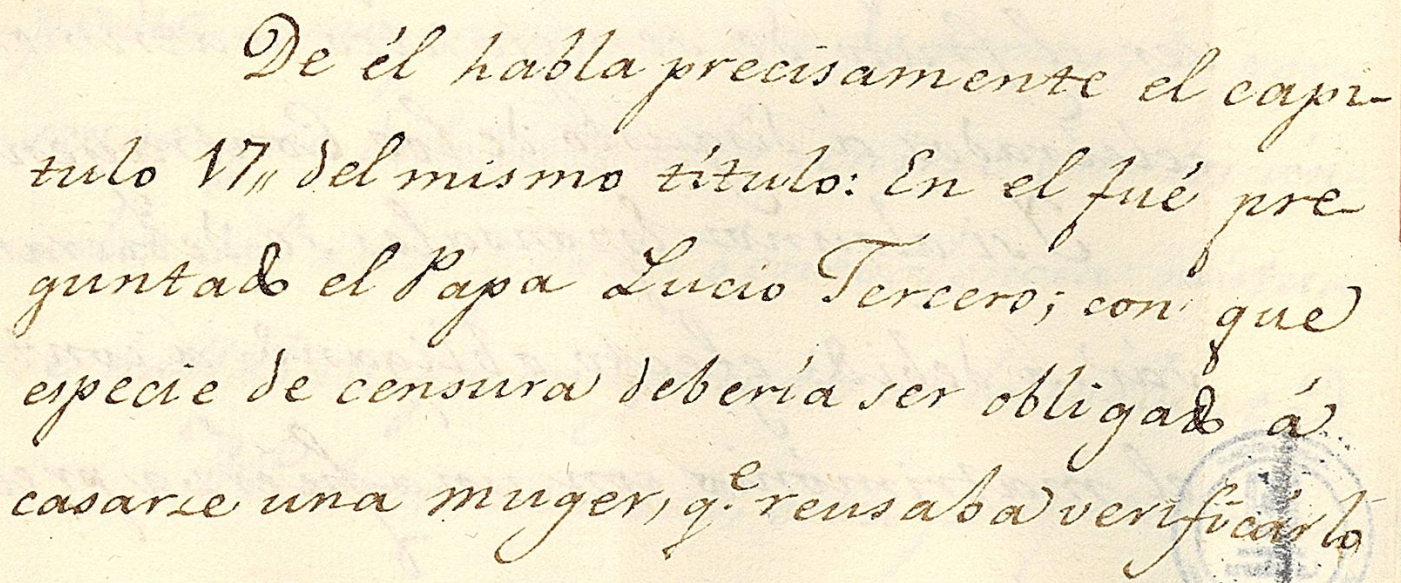 De él habla precisamente el capi-
tulo 17,, del mismo título: En el fué pre-
guntado el Papa Lucio Tercero; con que
especie de censura debería ser obligado á
casarse una muger, q.e reusaba verificarlo